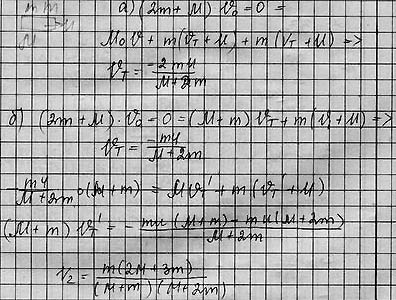 m m
M
а) (2m + M) v₀ = 0 =
M₀ v + m(v_T + u) + m(v_T + u) =>
v_T = -2mu / M + 2m
б) (2m + M) · v₀ = 0 = (M + m) v_T + m(v + u) =>
v_T = -mu / M + 2m
-mu / M + 2m · (M + m) = M v_T' + m(v_T' + u)
(M + m) v_T' = - mu(M + m) - mu(M + 2m) / M + 2m
v₂ = m(2M + 3m) / (M + m)(M + 2m)